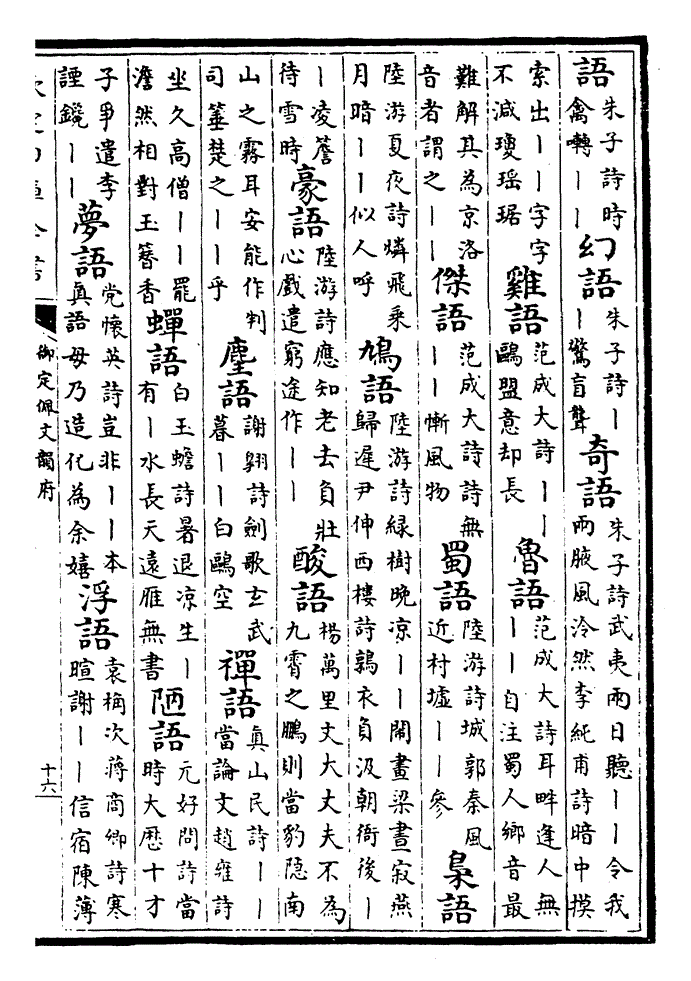 語朱子詩時禽囀丨丨幻語朱子詩丨丨驚盲聾奇語朱子詩武夷兩日聽丨丨令我兩腋風泠然李純甫詩暗中摸
索出丨丨字字不減瓊瑶琚雞語范成大詩丨丨鷗盟意却長魯語范成大詩耳畔逢人無丨丨自注蜀人鄉音最
難解其為京洛音者謂之丨丨傑語范成大詩詩無丨丨慚風物蜀語陸游詩城郭秦風近村墟丨丨參梟語
陸游夏夜詩燐飛乘月暗丨丨似人呼鳩語陸游詩緑樹晚凉丨丨閙畫梁晝寂燕歸遲尹伸西樓詩鶉衣負汲朝衙後丨
丨凌簷待雪時豪語陸游詩應知老去負壯心戲遣窮途作丨丨酸語楊萬里文大丈夫不為九霄之鵬則當豹隐南
山之霧耳安能作判司箠楚之丨丨乎麈語謝翱詩劍歌玄武暮丨丨白鷗空禪語真山民詩丨丨當論文趙雍詩
坐久高僧丨丨罷澹然相對玉簪香蟬語白玉蟾詩暑退凉生丨有丨水長天遠雁無書陋語元好問詩當時大厯十才
子爭遣李䥧鏡丨丨夢語党懐英詩豈非丨丨本真語毋乃造化為余嬉浮語袁桷次蔣商卿詩寒暄謝丨丨信宿陳薄
御定佩文韻府
十六